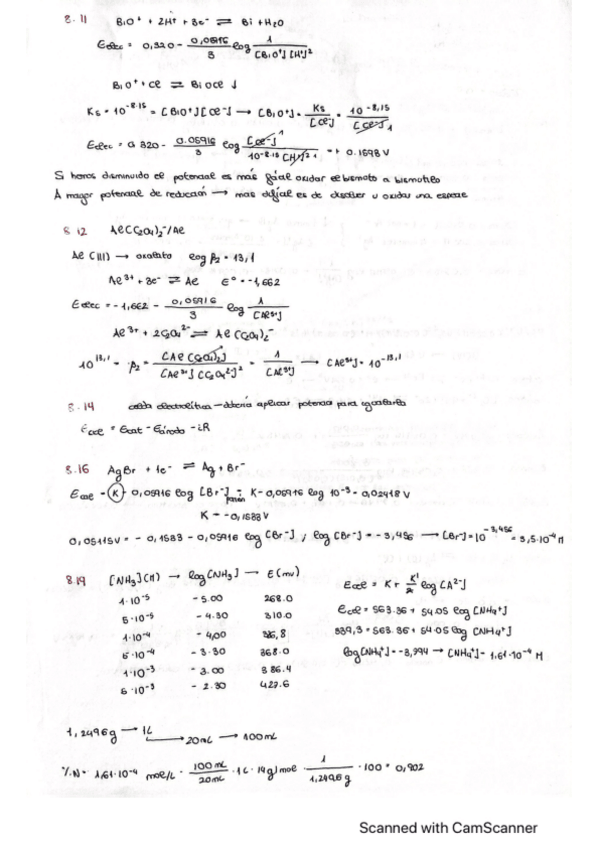 8.11 BiO⁺ + 2H⁺ + 3e⁻ ⇌ Bi + H₂O
Eelec = 0,320 - 0,05916/3 log 1/[BiO⁺][H⁺]²
BiO⁺ + Cl ⇌ BiOCl ↓
Ks = 10^-8.15 = [BiO⁺][Cl⁻] → [BiO⁺] = Ks/[Cl⁻] = 10^-8,15/[Cl⁻] 1
Eelec = 0.320 - 0.05916/3 log [Cl⁻] 1/10^-8.15 [H⁺]² 1 = + 0.1598 V
Si hemos disminuido el potencial es más fácil oxidar el bismuto a bismutilo
A mayor potencial de reducción → más difícil es de disolver u oxidar una especie
8.12 Al(C₂O₄)₂⁻/Al
Al(III) → oxalato log β₂ = 13,1
Al³⁺ + 3e⁻ ⇌ Al E° = -1,662
Eelec = -1,662 - 0,05916/3 log 1/[Al³⁺]
Al³⁺ + 2C₂O₄²⁻ ⇌ Al(C₂O₄)₂⁻
10^13,1 = β₂ = [Al(C₂O₄)₂⁻]/[Al³⁺][C₂O₄²⁻]² = 1/[Al³⁺] → [Al³⁺] = 10^-13,1
8.14 celda electrolítica - debería aplicar potencia para
Ecel = Ecat - Eánodo - iR
8.16 AgBr + 1e⁻ ⇌ Ag + Br⁻
Ecel = K - 0,05916 log [Br⁻] = K - 0,05916 log 10⁻³ = 0,02418 V
K = -0,1533 V
0,05115V = -0,1533 - 0,05916 log [Br⁻] ; log [Br⁻] = -3,456 → [Br⁻] = 10^-3,456 = 3,5·10⁻⁴ M
8.19 [NH₃](M) → log[NH₃] → E(mV) Ecel = K + K'/z log [A²⁻]
1·10⁻⁵ -5.00 268.0
5·10⁻⁵ -4.30 310.0 Ecel = 563.36 + 54.05 log [NH₄⁺]
1·10⁻⁴ -4,00 326,8 339,3 = 563.36 + 54.05 log [NH₄⁺]
5·10⁻⁴ -3.30 368.0 log[NH₄⁺] = -3,794 → [NH₄⁺] = 1,61·10⁻⁴ M
1·10⁻³ -3.00 386.4
5·10⁻³ -2.30 427.6
1,2496g → 1L
→ 20mL → 100mL
%N = 1,61·10⁻⁴ mol/L · 100mL/20mL · 1L · 14g/mol · 1/1,2496g · 100 = 0,902
Scanned with CamScanner